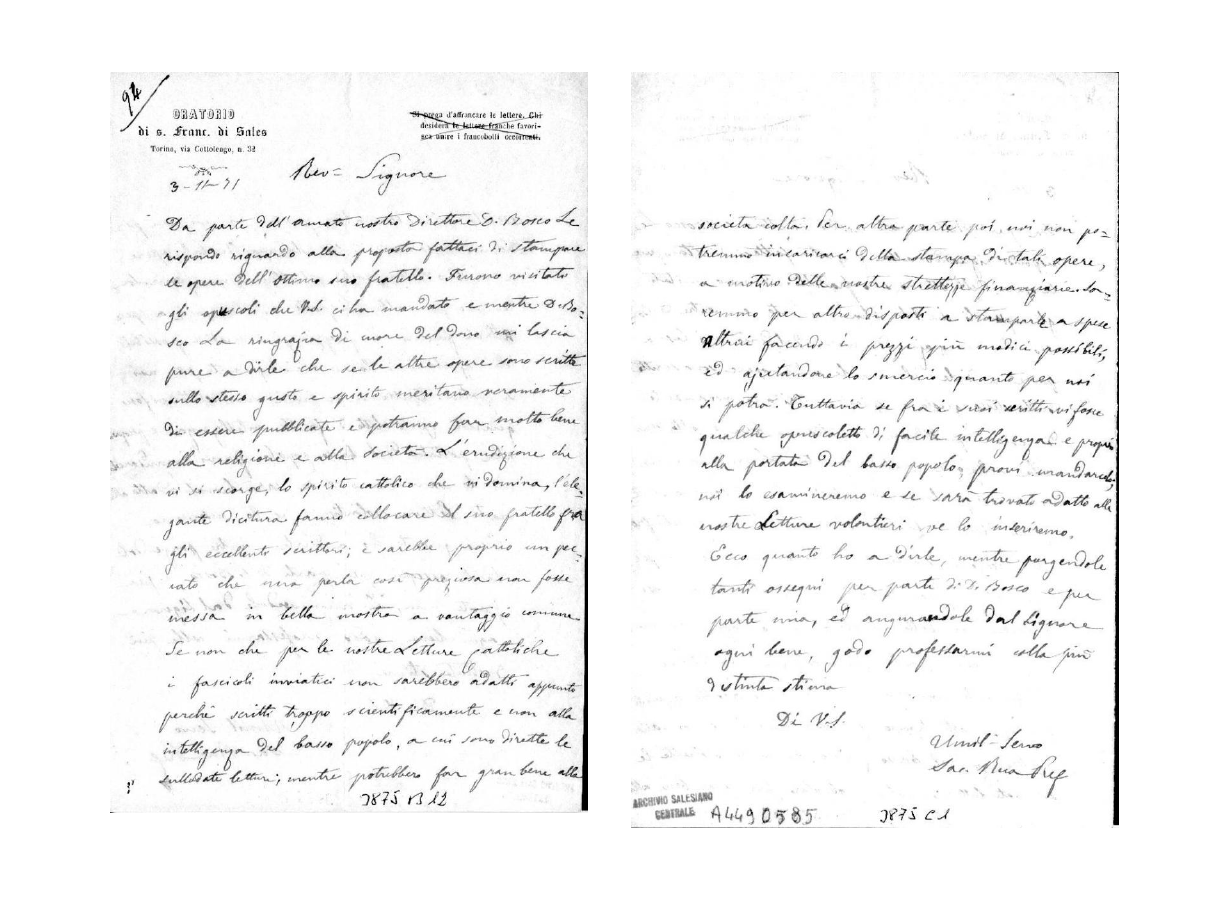 94
ORATORIO
di s. Franc. di Sales
Torino, via Cottolengo, n. 32
Si prega d'affrancare le lettere. Chi
desidera le lettere franche favori-
sca unire i francobolli occorrenti.
3-11-71
Rev= Signore
Da parte dell'amato nostro Direttore D. Bosco Le
rispondo riguardo alla proposta fattaci di stampare
le opere dell'ottimo suo fratello. Furono visitati
gli opuscoli che V.S. ci ha mandato e mentre D. Bo=
sco La ringrazia di cuore del dono mi lascia
pure a dirle che se le altre opere sono scritte
sullo stesso gusto e spirito meritano veramente
di essere pubblicate e potranno far molto bene
alla religione e alla società. L'erudizione che
vi si scorge, lo spirito cattolico che vi domina, l'ele=
gante dicitura fanno collocare il suo fratello fra
gli eccellenti scrittori; e sarebbe proprio un pec=
cato che una perla così preziosa non fosse
messa in bella mostra a vantaggio comune.
Se non che per le nostre Letture Cattoliche
i fascicoli inviatici non sarebbero adatti appunto
perchè scritti troppo scientificamente e non alla
intelligenza del basso popolo, a cui sono dirette le
sullodate letture; mentre potrebbero far gran bene alla
3875 B 12
società colta. Per altra parte poi noi non po=
tremmo incaricarci della stampa di tali opere,
a motivo delle nostre strettezze finanziarie. Sa=
remmo per altro disposti a stamparle a spese
altrui facendo i prezzi più modici possibili,
ed ajutandone lo smercio quanto per noi
si potrà. Tuttavia se fra i suoi scritti vi fosse
qualche opuscoletto di facile intelligenza e proprio
alla portata del basso popolo, provi mandarcelo,
noi lo esamineremo e se sarà trovato adatto alle
nostre Letture volontieri ve lo inseriremo.
Ecco quanto ho a dirle, mentre porgendole
tanti ossequi per parte di D. Bosco e per
parte mia, ed augurandole dal Signore
ogni bene, godo professarmi colla più
distinta stima
Di V.S.
Umil= Servo
Sac. Rua Pref
ARCHIVIO SALESIANO
CENTRALE
A4490585
3875 C 1